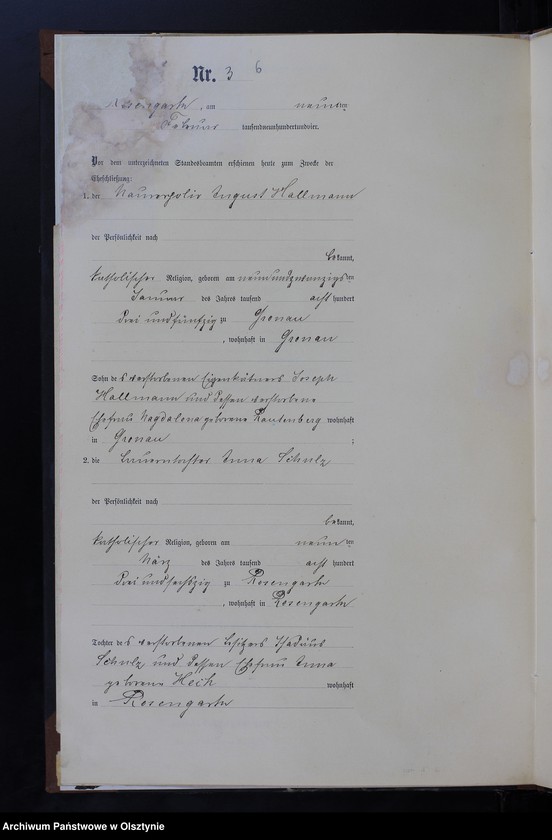 Nr. 3 6
Rosengarth, am neunten
Februar tausendneunhundertundvier.
Vor dem unterzeichneten Standesbeamten erschienen heute zum Zwecke der
Eheschließung:
1. der Maurerpolir August Hallmann
der Persönlichkeit nach
bekannt,
katholischer Religion, geboren am neunundzwanzigsten
Januar des Jahres tausend achthundert
drei und fünfzig zu Gronau
, wohnhaft in Gronau
Sohn des verstorbenen Eigenkäthners Joseph
Hallmann und dessen verstorbene
Ehefrau Magdalena geborene Rautenberg wohnhaft
in Gronau ;
2. die Bauerntochter Anna Schulz
der Persönlichkeit nach
bekannt,
katholischer Religion, geboren am neunten
März des Jahres tausend achthundert
drei und sechszig zu Rosengarth
, wohnhaft in Rosengarth
Tochter des verstorbenen Besitzers
Schulz und dessen Ehefrau Anna
geborene wohnhaft
in Rosengarth
Archiwum Państwowe w Olsztynie